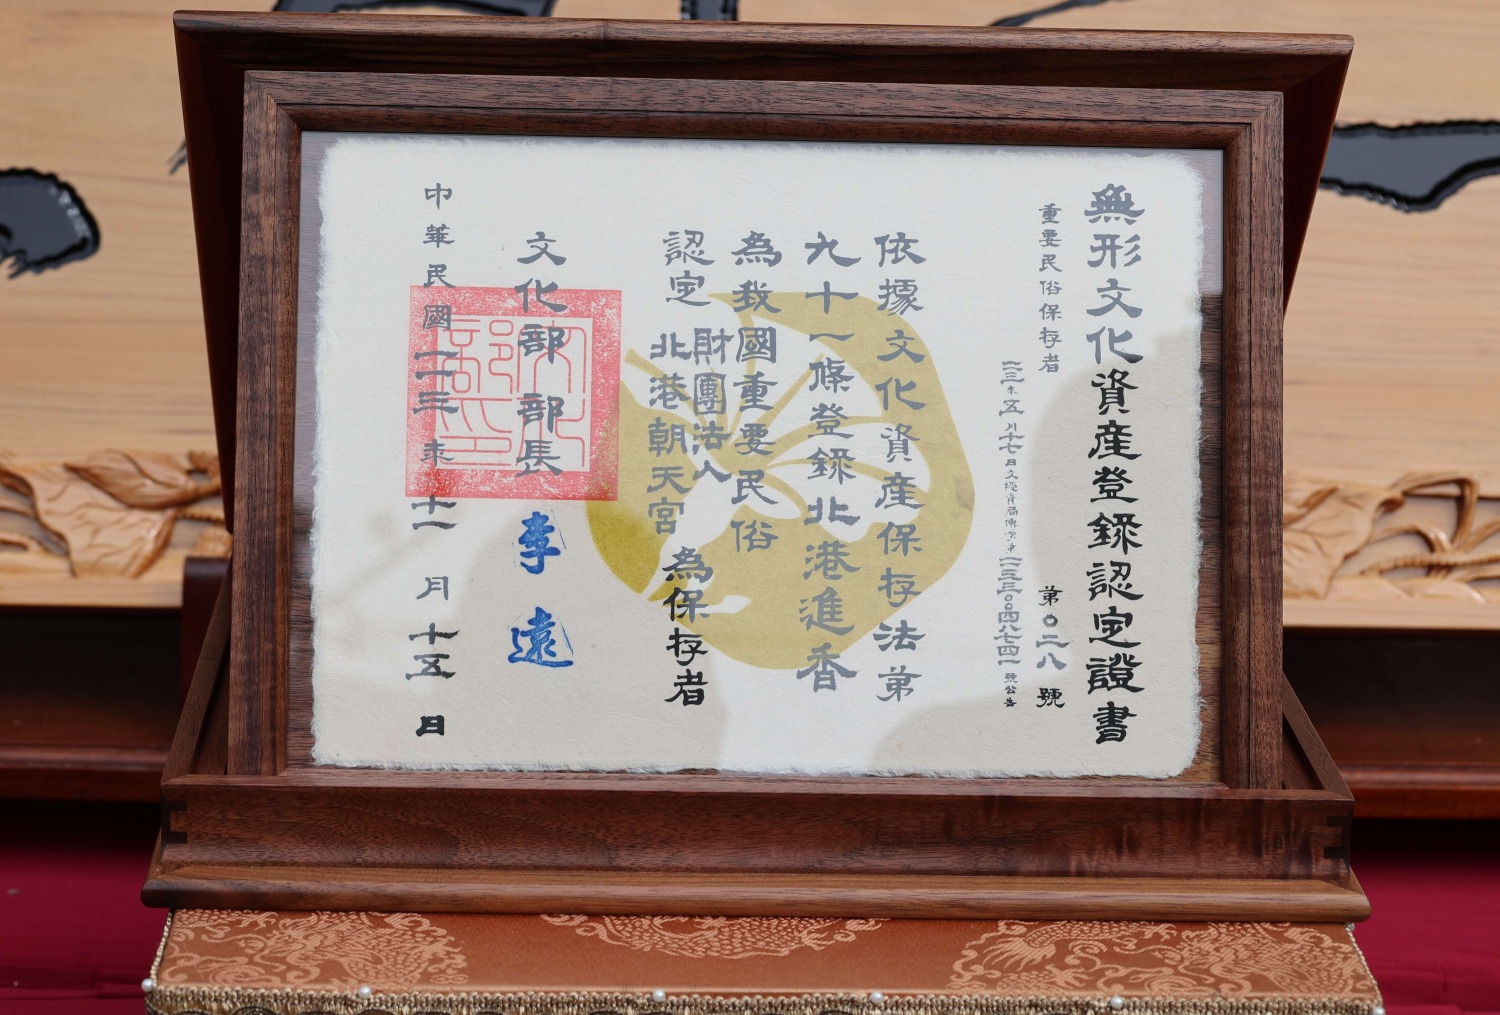 無形文化資產登錄認定證書
重要民俗保存者 第〇二八號
一一三年五月十七日文授資局傳字第一一三三〇〇四八七四一號公告
依據文化資產保存法第
九十一條登錄北港進香
為我國重要民俗
認定財團法人北港朝天宮為保存者
文化部部長 李遠
中華民國一一三年十一月十五日
文化部印